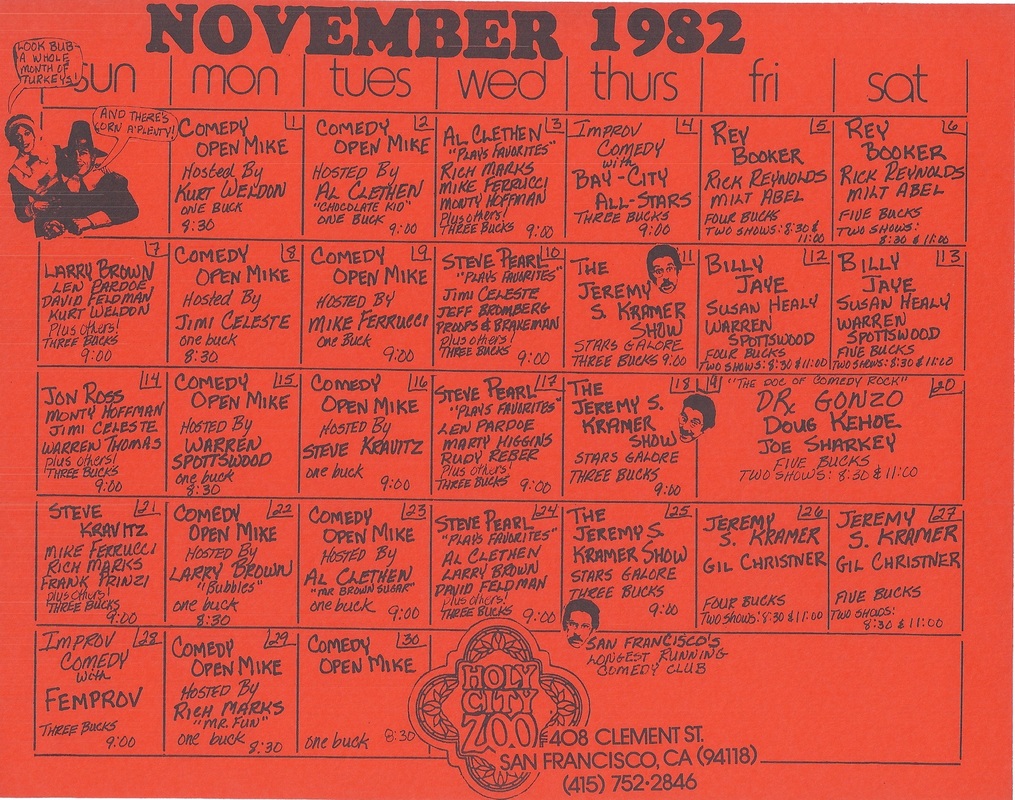 NOVEMBER 1982
LOOK BUB-
A WHOLE
MONTH OF
TURKEYS!
AND THERE'S
CORN A'PLENTY!
sun mon tues wed thurs fri sat
1
COMEDY
OPEN MIKE
Hosted By
KURT WELDON
ONE BUCK
8:30
2
COMEDY
OPEN MIKE
HOSTED By
AL CLETHEN
"CHOCOLATE KID"
ONE BUCK
9:00
3
AL CLETHEN
"PLAYS FAVORITES"
RICH MARKS
MIKE FERRUCCI
MONTY HOFFMAN
Plus others!
THREE BUCKS 9:00
4
IMPROV
COMEDY
with
BAY-CITY
ALL-STARS
THREE BUCKS
9:00
5
REY
BOOKER
RICK REYNOLDS
MILT ABEL
FOUR BUCKS
TWO SHOWS: 8:30 &
11:00
6
REY
BOOKER
RICK REYNOLDS
MILT ABEL
FIVE BUCKS
TWO SHOWS:
8:30 & 11:00
7
LARRY BROWN
LEN PARDOE
DAVID FELDMAN
KURT WELDON
Plus others!
THREE BUCKS
9:00
8
COMEDY
OPEN MIKE
Hosted By
JIMI CELESTE
one buck
8:30
9
COMEDY
OPEN MIKE
HOSTED By
MIKE FERRUCCI
one Buck
9:00
10
STEVE PEARL
"PLAYS FAVORITES"
JIMI CELESTE
JEFF BROMBERG
PROOPS & BRAKEMAN
plus others!
THREE BUCKS
9:00
11
THE
JEREMY
S. KRAMER
SHOW
STARS GALORE
THREE BUCKS 9:00
12
BILLY
JAYE
SUSAN HEALY
WARREN
SPOTTSWOOD
FOUR BUCKS
TWO SHOWS: 8:30 & 11:00
13
BILLY
JAYE
SUSAN HEALY
WARREN
SPOTTSWOOD
FIVE BUCKS
TWO SHOWS: 8:30 & 11:00
14
JON ROSS
MONTY HOFFMAN
JIMI CELESTE
WARREN THOMAS
plus others!
THREE BUCKS
9:00
15
COMEDY
OPEN MIKE
HOSTED By
WARREN
SPOTTSWOOD
one buck
8:30
16
COMEDY
OPEN MIKE
HOSTED By
STEVE KRAVITZ
one buck
9:00
17
STEVE PEARL
"PLAYS FAVORITES"
LEN PARDOE
MARTY HIGGINS
RUDY REBER
Plus others!
THREE BUCKS 9:00
18
THE
JEREMY S.
KRAMER
SHOW
STARS GALORE
THREE BUCKS
9:00
19 20
"THE DOC OF COMEDY ROCK"
DR. GONZO
DOUG KEHOE
JOE SHARKEY
FIVE BUCKS
TWO SHOWS: 8:30 & 11:00
21
STEVE
KRAVITZ
MIKE FERRUCCI
RICH MARKS
FRANK PRINZI
plus others!
THREE BUCKS
9:00
22
COMEDY
OPEN MIKE
HOSTED By
LARRY BROWN
"Bubbles"
one buck
8:30
23
COMEDY
OPEN MIKE
HOSTED By
AL CLETHEN
"MR BROWN SUGAR"
one buck 9:00
24
STEVE PEARL
"PLAYS FAVORITES"
AL CLETHEN
LARRY BROWN
DAVID FELDMAN
plus others!
THREE BUCKS 9:00
25
THE
JEREMY S.
KRAMER SHOW
STARS GALORE
THREE BUCKS
9:00
26
JEREMY
S. KRAMER
GIL CHRISTNER
FOUR BUCKS
TWO SHOWS: 8:30 & 11:00
27
JEREMY
S. KRAMER
GIL CHRISTNER
FIVE BUCKS
TWO SHOWS:
8:30 & 11:00
28
IMPROV
COMEDY
with
FEMPROV
THREE BUCKS
9:00
29
COMEDY
OPEN MIKE
HOSTED By
RICH MARKS
"MR. FUN"
one buck 8:30
30
COMEDY
OPEN MIKE
one buck 8:30
SAN FRANCISCO'S
LONGEST RUNNING
COMEDY CLUB
HOLY
CITY
ZOO
408 CLEMENT ST.
SAN FRANCISCO, CA (94118)
(415) 752-2846